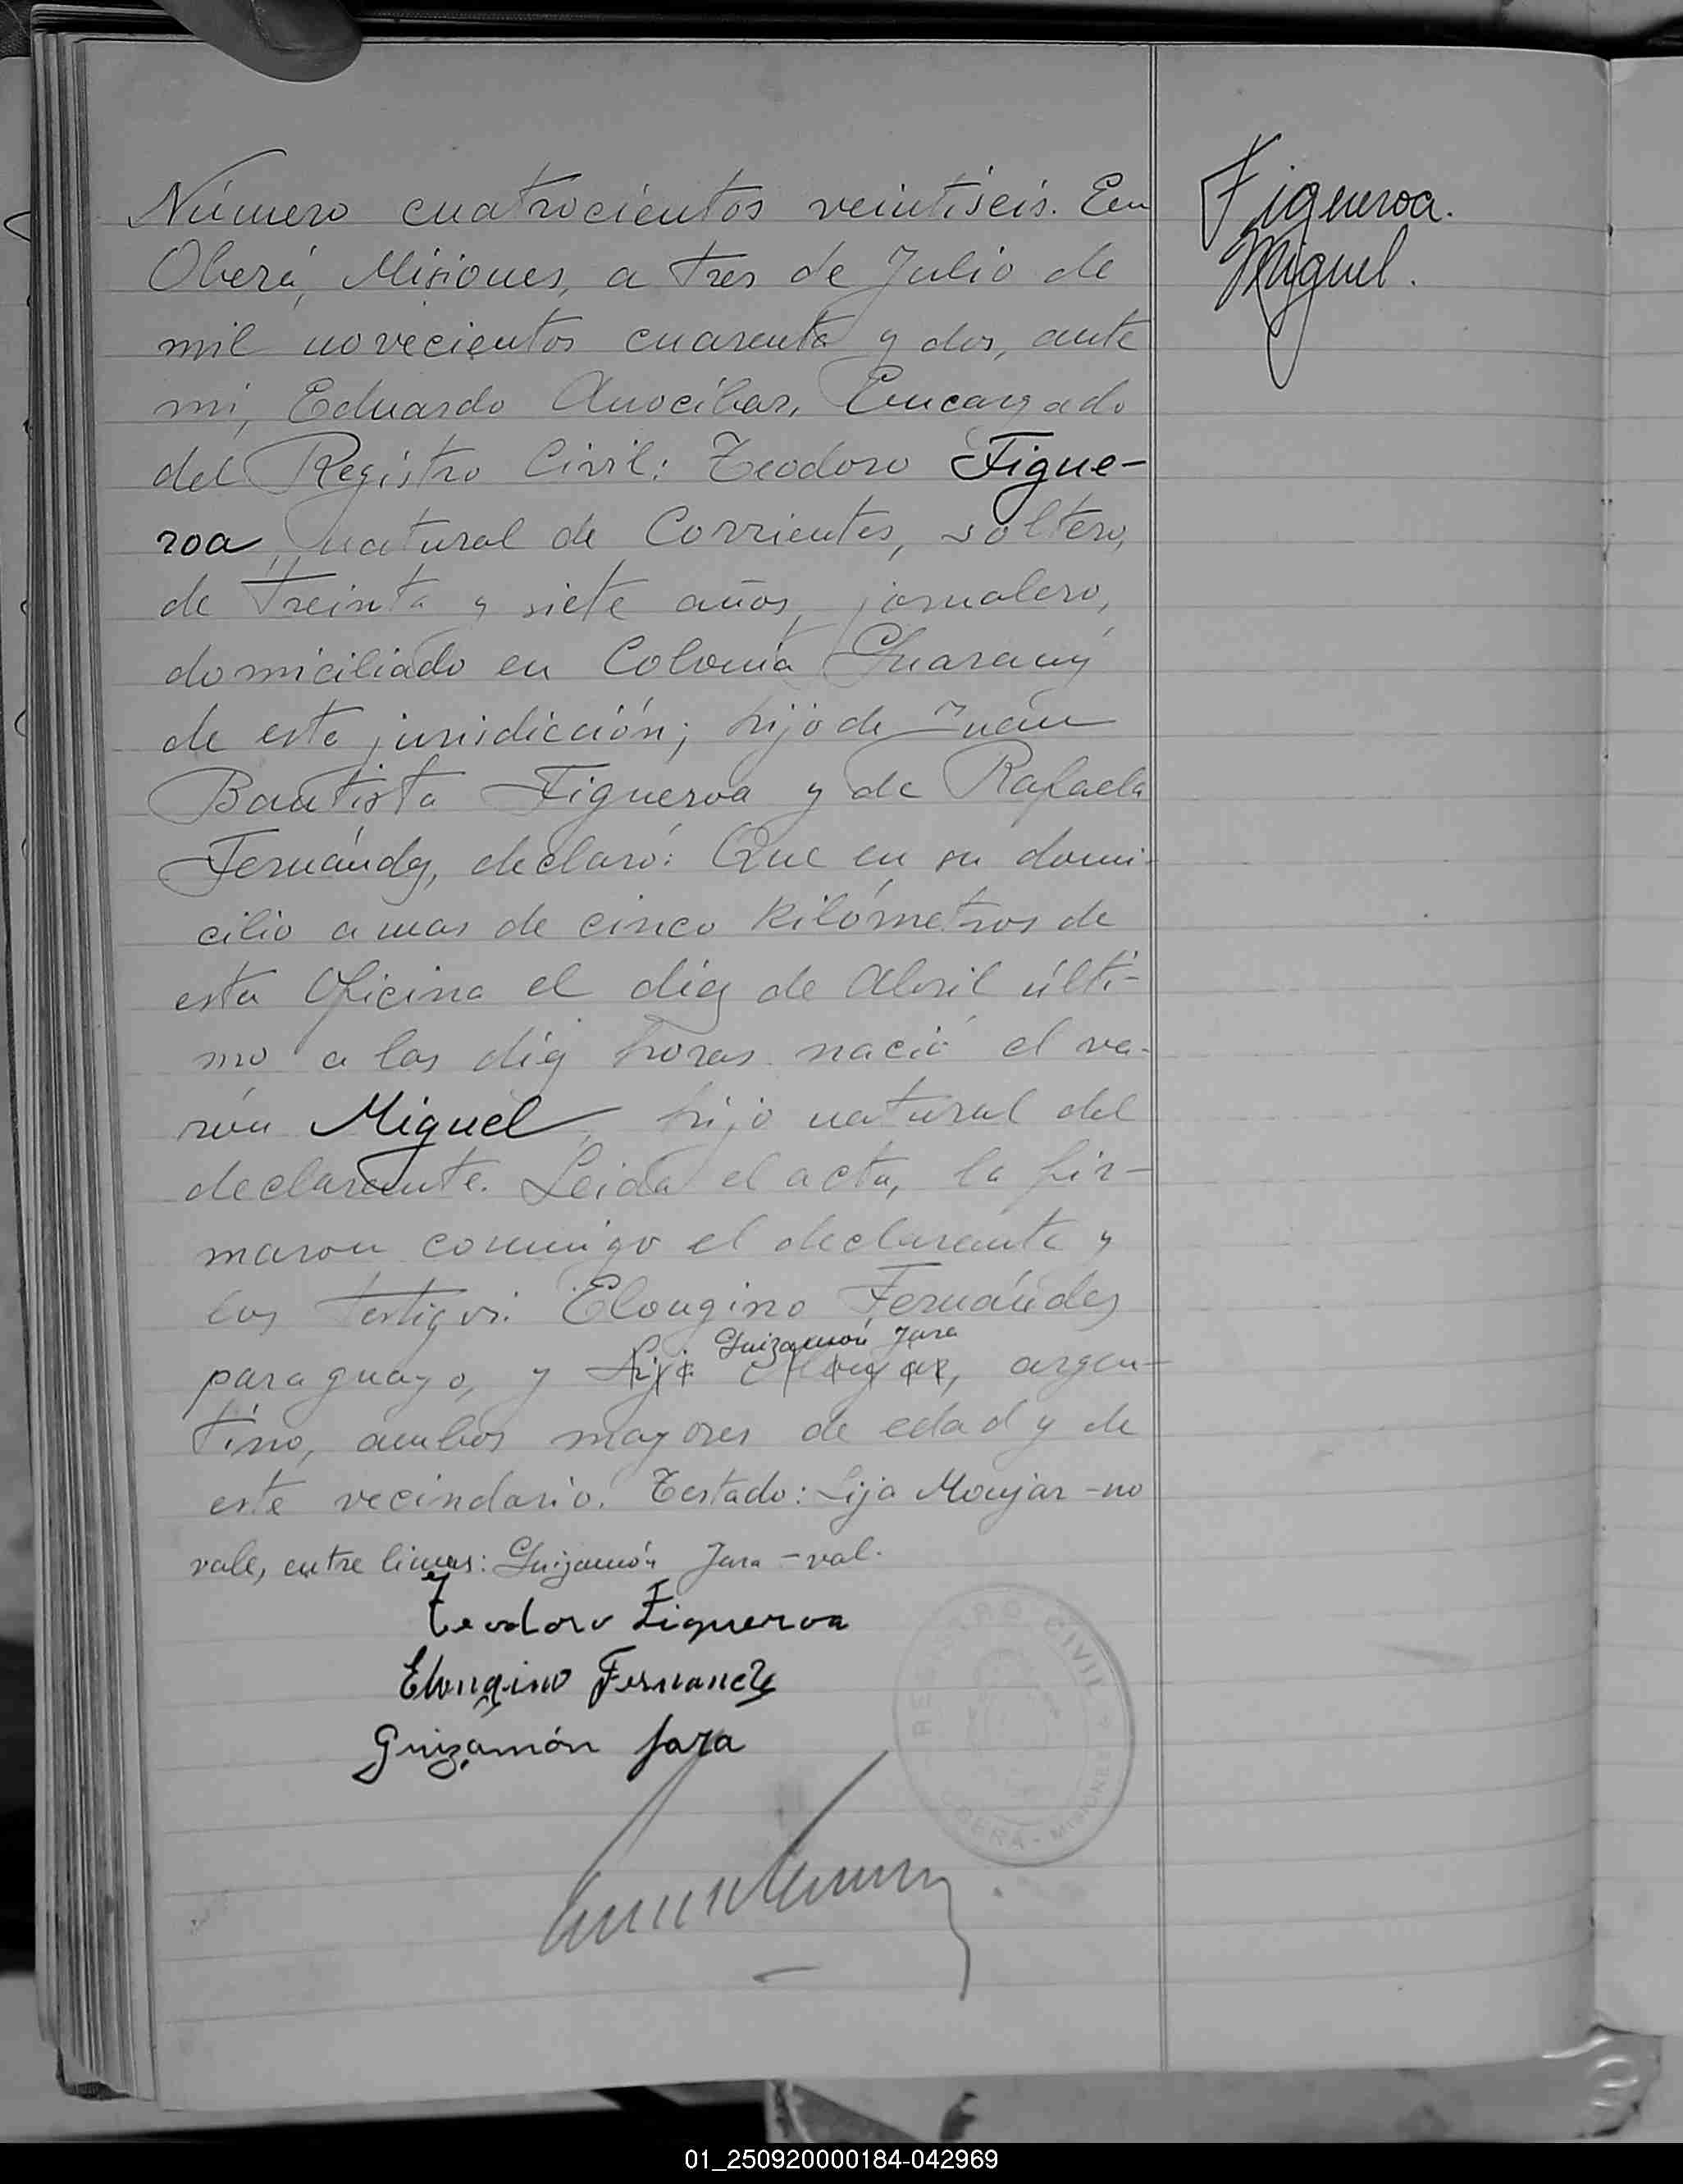 Número cuatrocientos veintiseis. En
Oberá, Misiones, a tres de Julio de
mil novecientos cuarenta y dos, ante
mi, Eduardo Anocibar, Encargado
del Registro Civil: Teodoro Figue-
roa, natural de Corrientes, soltero,
de treinta y siete años, jornalero,
domiciliado en Colonia Guarany
de esta jurisdicción; hijo de Juan
Bautista Figueroa y de Rafaela
Fernández, declaró: Que en su domi-
cilio a mas de cinco kilómetros de
esta Oficina el diez de Abril últi-
mo a las diez horas nació el va-
rón Miguel, hijo natural del
declarante. Leida el acta, la fir-
maron conmigo el declarante y
los testigos: Elongino Fernández
Guizamón Jara
paraguayo, y Lija Moujar, argen-
tino, ambos mayores de edad y de
este vecindario. Testado: Lija Moujar - no
vale, entre lineas: Guizamón Jara - val.
Teodoro Figueroa
Elongino Fernandez
Guizamón Jara
Figueroa.
Miguel.
REGISTRO CIVIL
OBERÁ - MISIONES
01_250920000184-042969